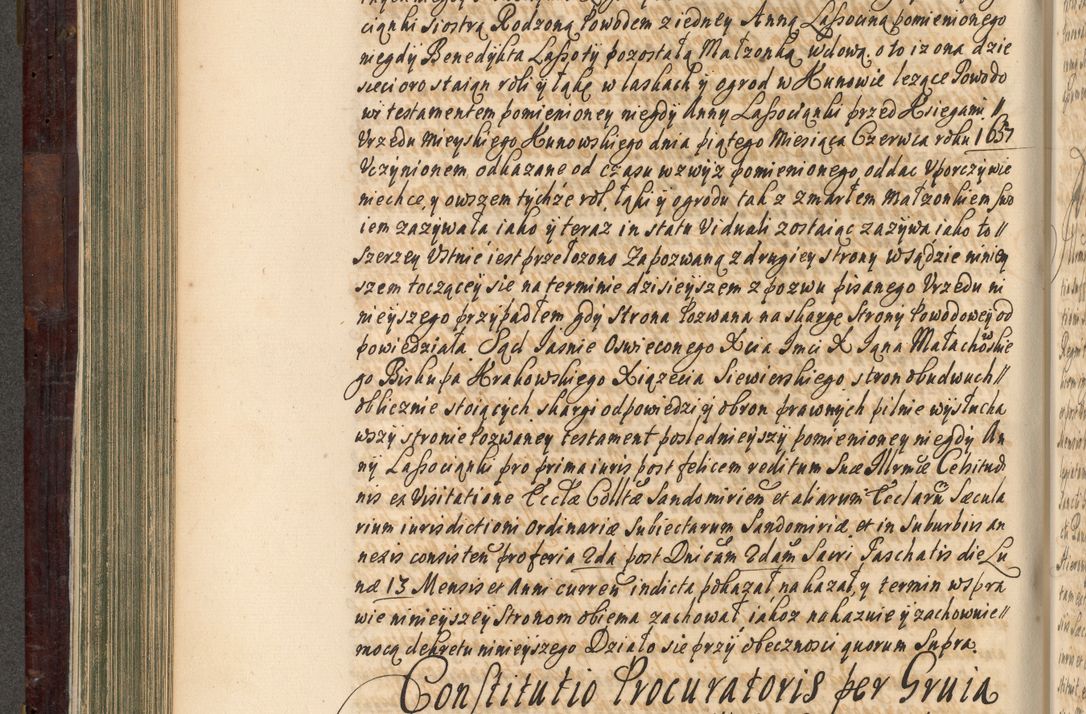 cianki siostrą Rodzoną Powodem z iedney Anną Lassocina pomienionego
niegdy Benedykta Lassoty pozostałą Małzonką wdową, o to iz ona dzie
sięcioro staian roli y łąkę w laskach y ogrod w Kunowie lezące Powodo
wi testamentem pomienioney niegdy Anny Lassocianki przed Xsięgami //
Urzędu Mieyskiego Kunowskiego dnia piątego Miesiąca Czerwca roku 1657
Uczynionem, odkazane od czasu wzwyz pomienionego, oddac Uporczywie
niechce, y owszem tychze rol łąki y ogrodu tak z zmarłem Małzonkiem swo
iem zazywała iako y teraz in statu Viduali zostaiąc zazywa iako to //
Szerzey Ustnie iest przełozono Zapozwaną z drugiey strony w sądzie niniey
szem toczącey się na terminie dzisieyszem z pozwu pisanego Urzędu ni
nieyszego przypadłem gdy Strona Pozwana na skargę Strony Powodowey od
powiedziała. Sąd Iasnie Oswieconego Xcia Imci X Iana Małachowskie
go Biskupa Krakowskiego Xiązęcia Siewierskiego stron obudwuch //
oblicznie stoiących skargi odpowiedzi y obron prawnych pilnie wysłucha
wszy stronie Pozwaney testament poslednieyszy pomienioney niegdy An
ny Lassocianki pro prima iuris post felicem reditum Suæ Illrmæ Celsitud
nis ex Visitatione Ecclæ Colltæ Sandomirien et aliarum Ecclarū Sæcula
rium iurisdictioni Ordinariæ Subiectarum Sandomiriæ et in Suburbiis an
nexis consisteń pro feria 2da post Dnicam 2dam Sacri Paschatis die Lu
næ 13 Mensis et Anni curreń indicta pokazał nakazał, y termin w spra
wie ninieyszey Stronom obiema zachował iakoz nakazuie y zachownie //
mocą dekretu ninieyszego Działo się przy obecznosci quorum Supra.
Constitutio Procuratoris per Gruia